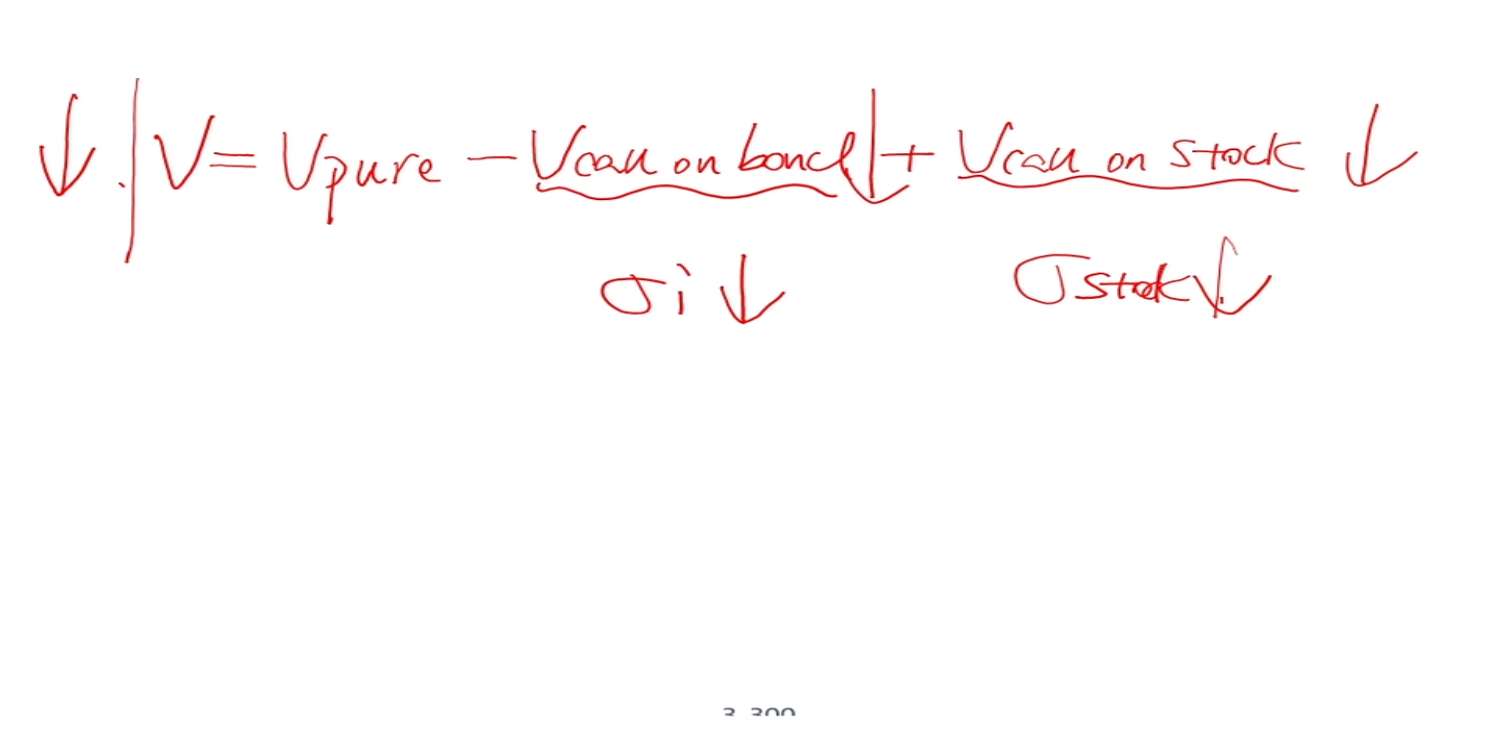 ↓ | V = Vpure − Vcall on bond ↓ + Vcall on stock ↓
σi ↓ σstock ↓